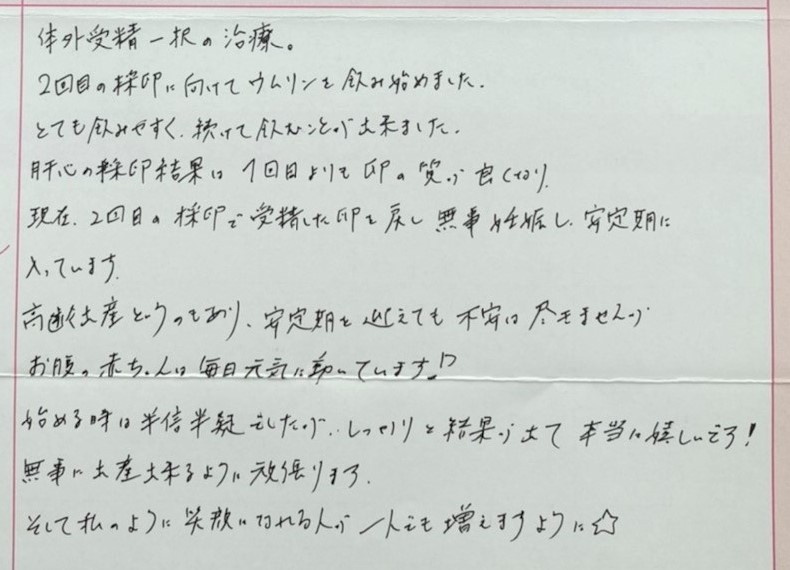 体外受精一択の治療。
2回目の採卵に向けてウムリンを飲み始めました。
とても飲みやすく、続けて飲むことが出来ました。
肝心の採卵結果は1回目よりも卵の質が良くなり、
現在、2回目の採卵で受精した卵を戻し無事妊娠し、安定期に
入っています。
高齢出産というのもあり、安定期を迎えても不安は尽きませんが
お腹の赤ちゃんは毎日元気に動いています!?
始める時は半信半疑でしたが、しっかりと結果が出て本当に嬉しいです!
無事に出産出来るように頑張ります。
そして私のように笑顔になれる人が一人でも増えますように☆